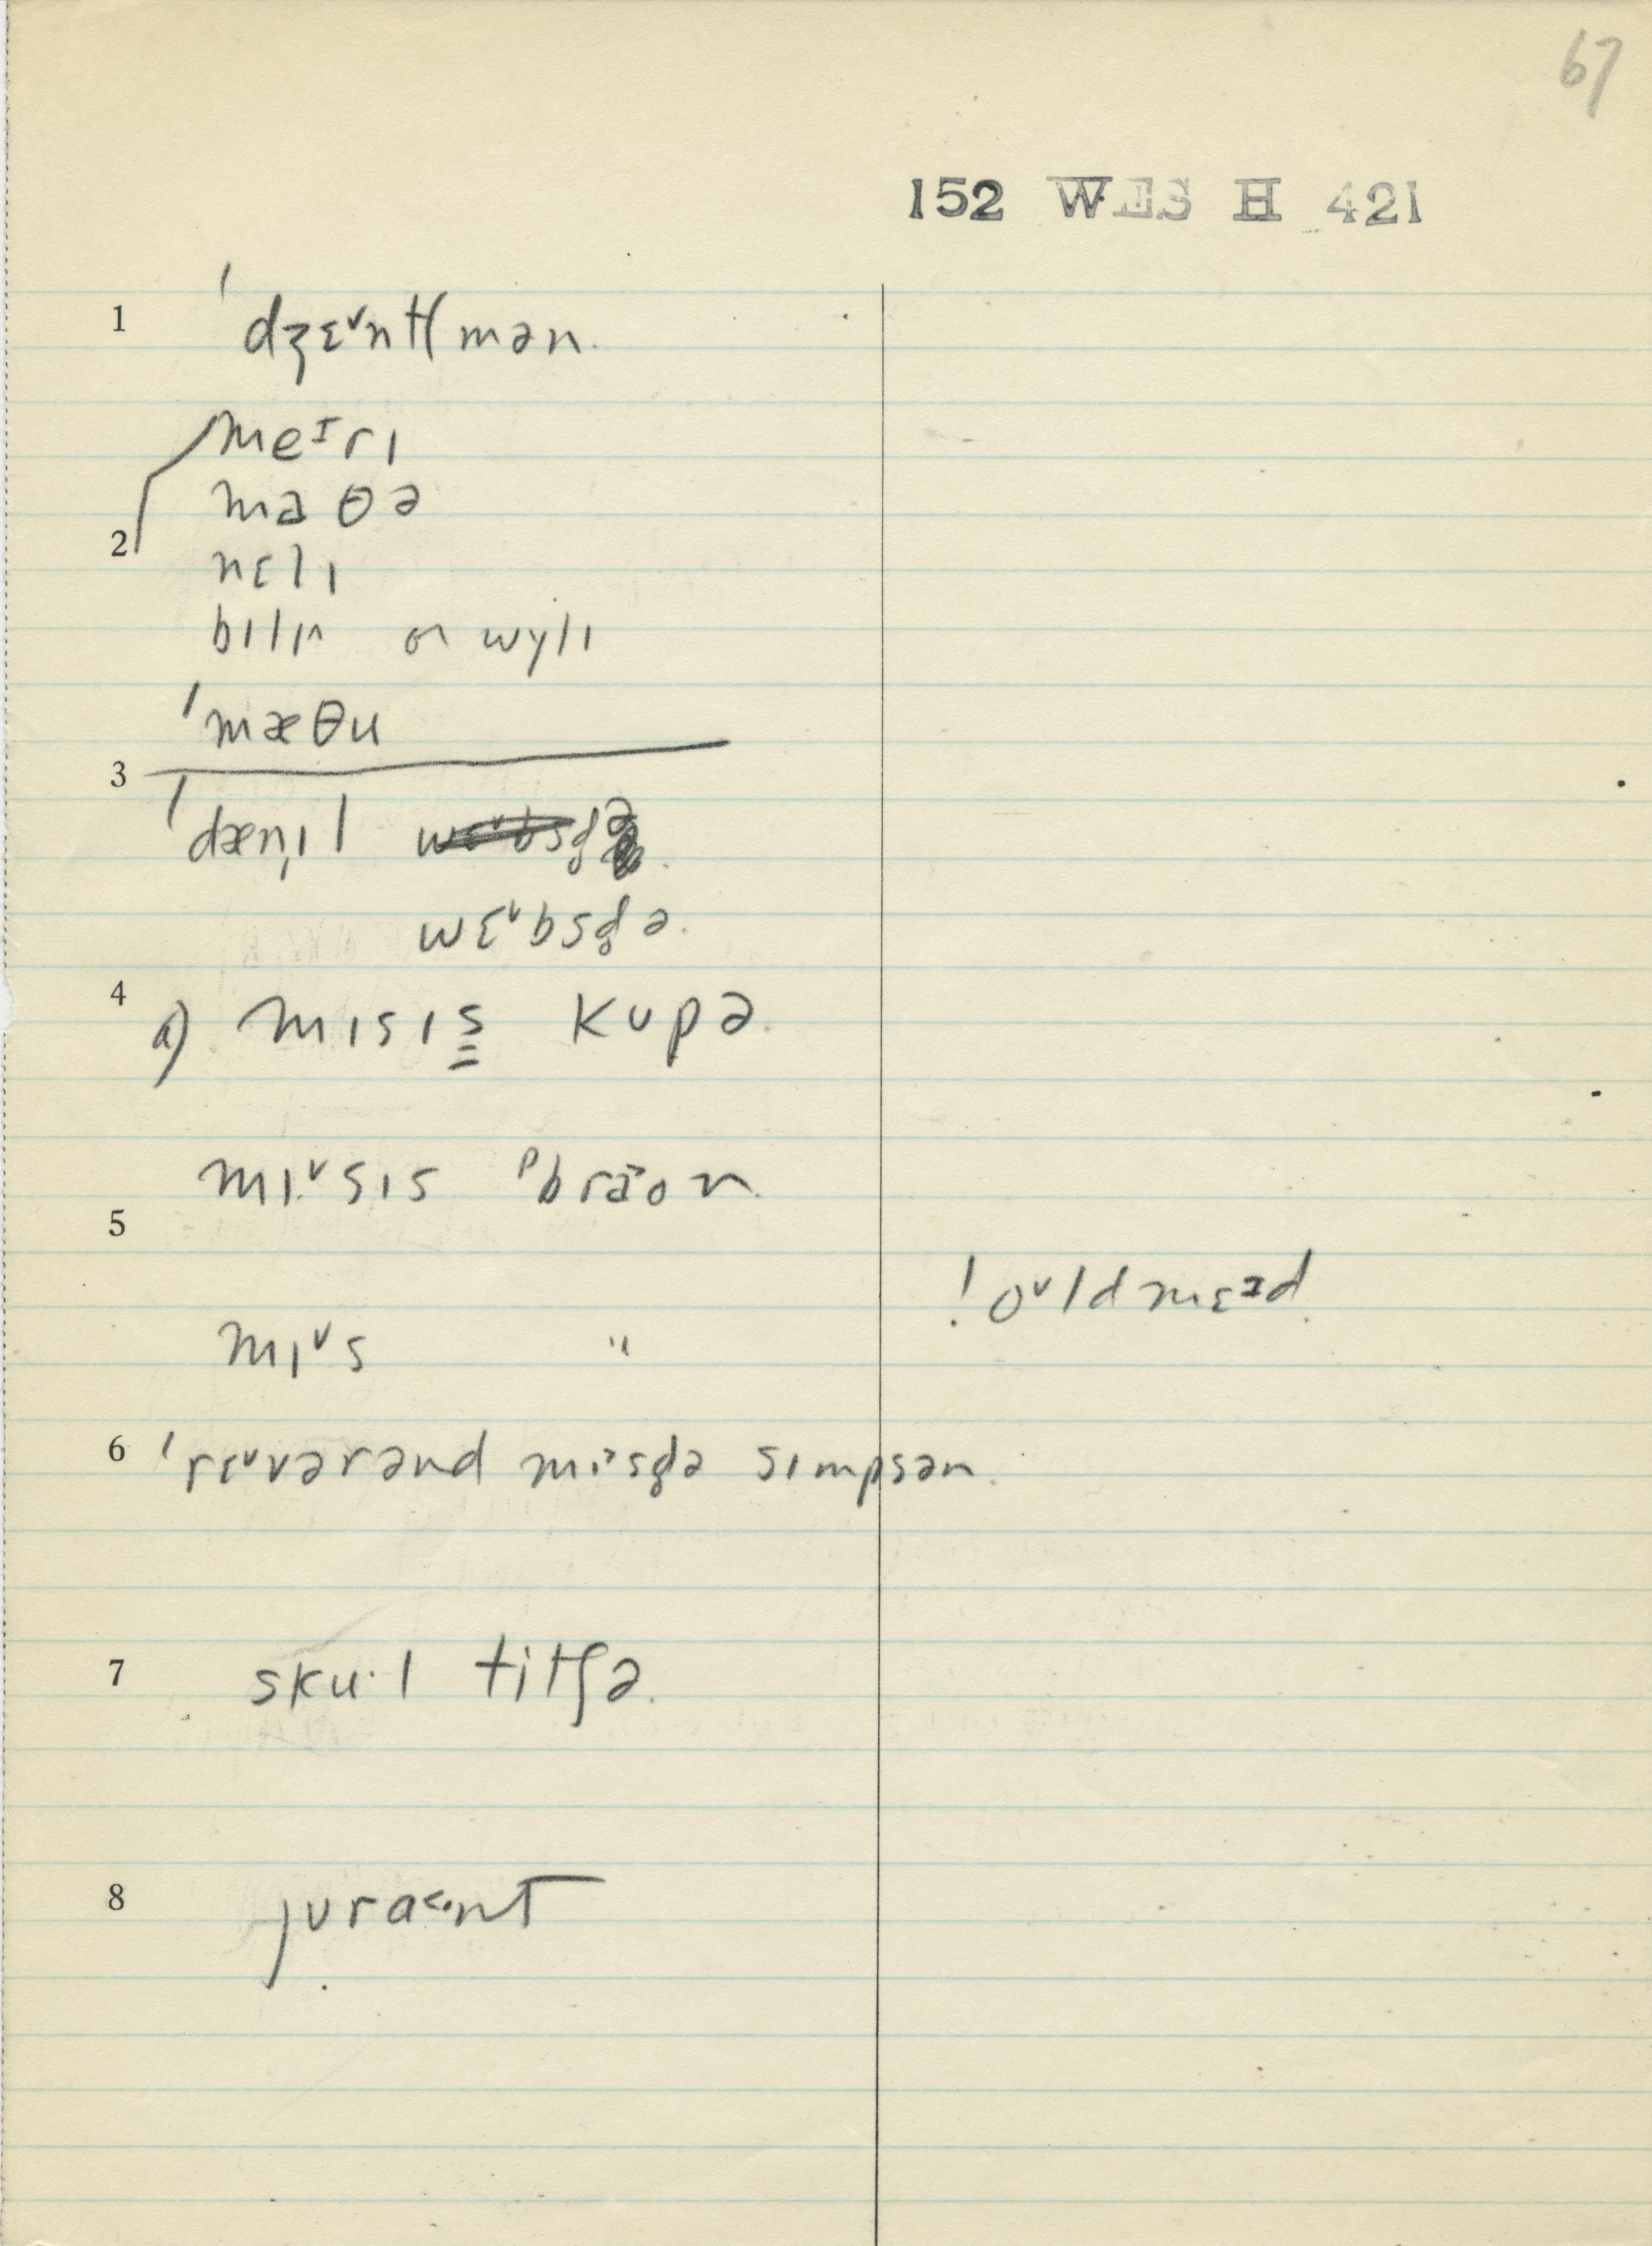 67
152 WES H 421
1 ˈdʒɛ˅ntl̩mən.
meᶦrɪ
maθə
2 nɛlɪ
bɪlɪ or wylɪ
ˈmæθu
3
ˈdænˌɪl
wɛ˅bsd̥ə.
4 a) mɪsɪs kupə.
mɪ˅sɪs ᵖbrāon
5
ˈoᵛld mɛᶦd.
mɪ˅s "
6 ˈrɛ˅vərənd mɪ˃sd̥ə sɪmpsən.
7 sku·l titʃə.
8 jʊra˂·nt